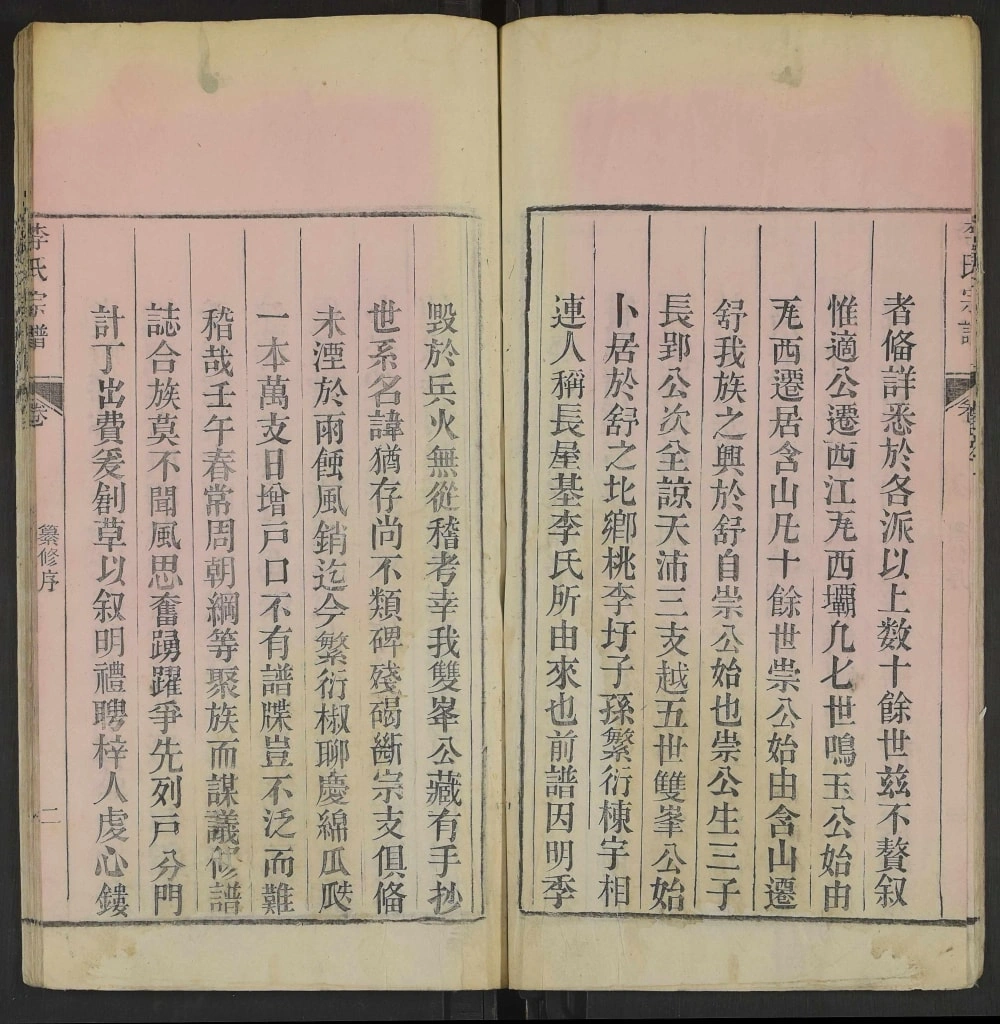 李氏宗譜
者俻詳悉於各派以上数十餘世兹不贅叙
惟適公遷西江尭西壩凢七世鳴玉公始由
尭西遷居含山凢十餘世崇公始由含山遷
舒我族之興於舒自崇公始也崇公生三子
長郢公次全諒天沛三支越五世雙峯公始
卜居於舒之北鄉桃李圩子孫繁衍棟宇相
連人稱長屋基李氏所由來也前譜因明季
毀於兵火無從稽考幸我雙峯公藏有手抄
世系名諱猶存尚不類碑殘碣斷宗支俱俻
未湮於雨蝕風銷迄今繁衍椒聊慶綿瓜瓞
一本萬支日增戸口不有譜牒豈不泛而難
稽哉壬午春常周朝綱等聚族而謀議修譜
誌合族莫不聞風思奮踴躍爭先列戸分門
計丁出費爰創草以叙明禮聘梓人虔心鏤
李氏宗譜
卷
纂修序
二